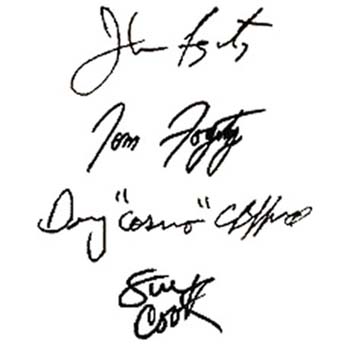 John Fogerty
Tom Fogerty
Doug "Cosmo" Clifford
Stu
Cook